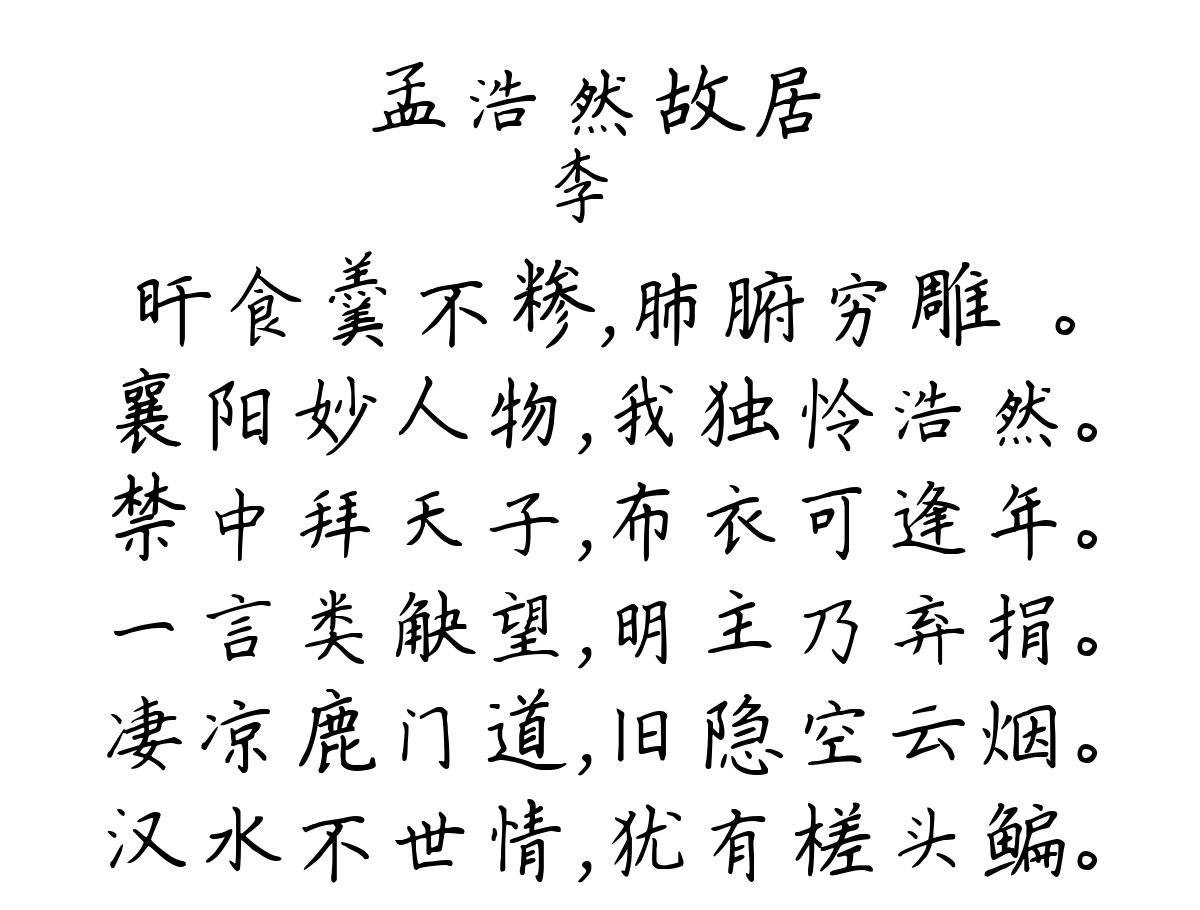 孟浩然故居
李
旰食羹不糁,肺腑穷雕 。
襄阳妙人物,我独怜浩然。
禁中拜天子,布衣可逢年。
一言类觖望,明主乃弃捐。
凄凉鹿门道,旧隐空云烟。
汉水不世情,犹有槎头鳊。